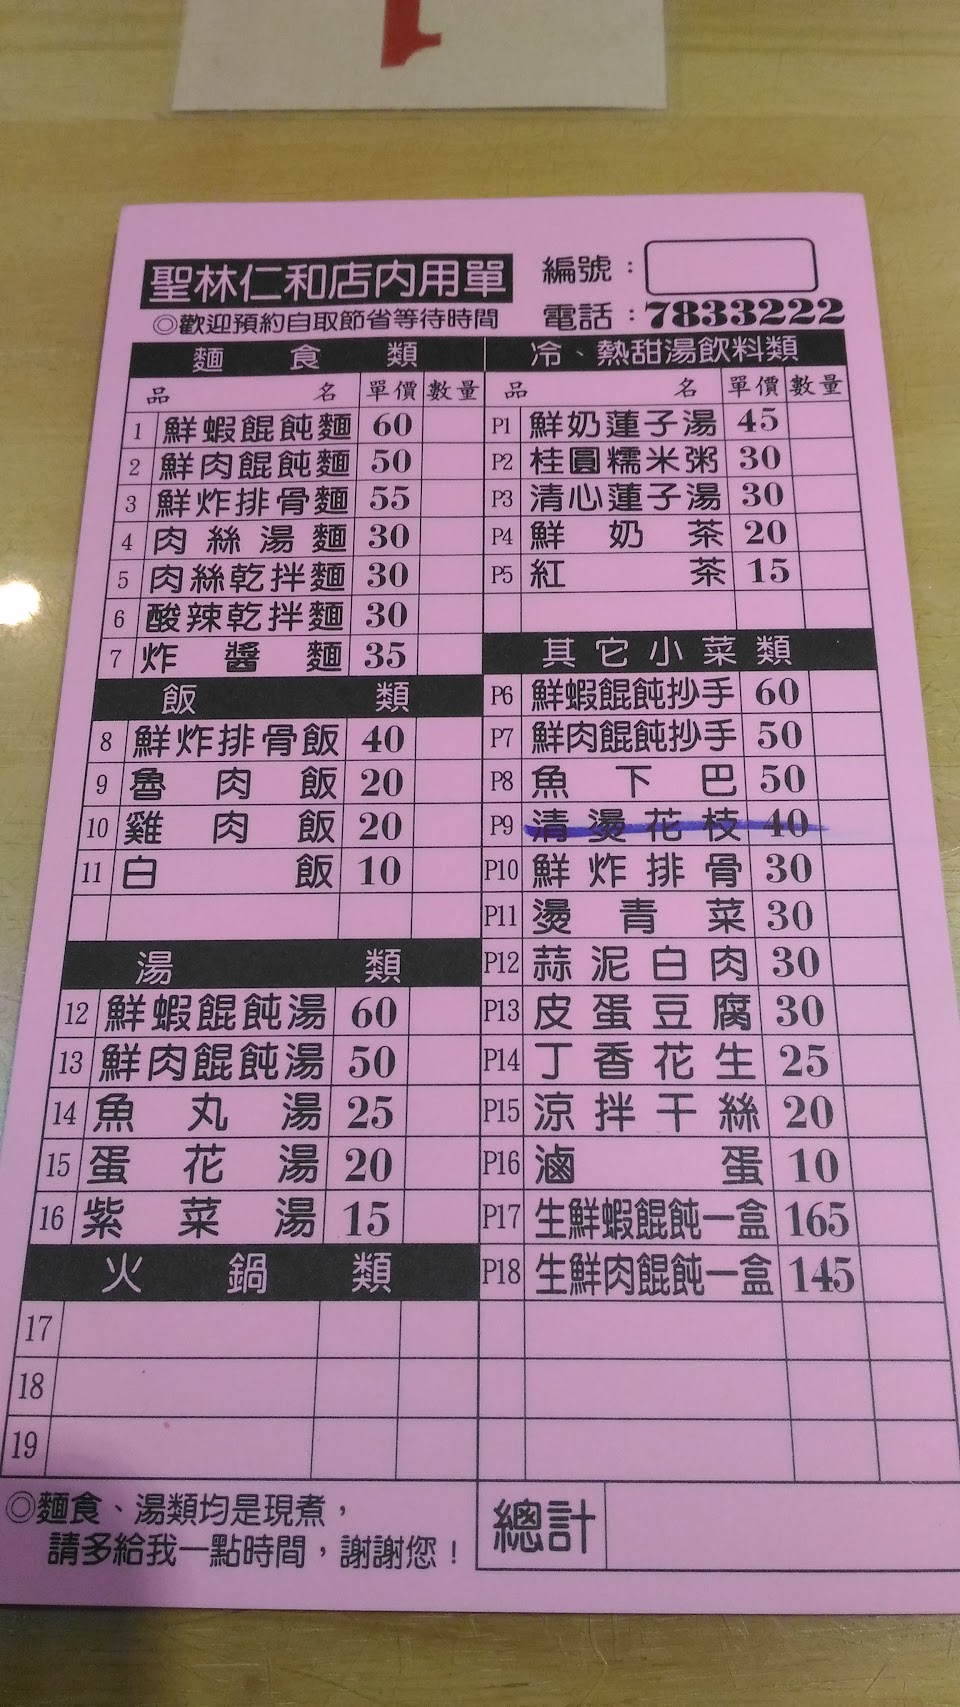 1
聖林仁和店內用單
編號：
◎歡迎預約自取節省等待時間
電話：7833222
麵食類
品名 單價 數量
1 鮮蝦餛飩麵 60
2 鮮肉餛飩麵 50
3 鮮炸排骨麵 55
4 肉絲湯麵 30
5 肉絲乾拌麵 30
6 酸辣乾拌麵 30
7 炸醬麵 35
飯類
8 鮮炸排骨飯 40
9 魯肉飯 20
10 雞肉飯 20
11 白飯 10
湯類
12 鮮蝦餛飩湯 60
13 鮮肉餛飩湯 50
14 魚丸湯 25
15 蛋花湯 20
16 紫菜湯 15
火鍋類
17
18
19
冷、熱甜湯飲料類
品名 單價 數量
P1 鮮奶蓮子湯 45
P2 桂圓糯米粥 30
P3 清心蓮子湯 30
P4 鮮奶茶 20
P5 紅茶 15
其它小菜類
P6 鮮蝦餛飩抄手 60
P7 鮮肉餛飩抄手 50
P8 魚下巴 50
P9 清燙花枝 40
P10 鮮炸排骨 30
P11 燙青菜 30
P12 蒜泥白肉 30
P13 皮蛋豆腐 30
P14 丁香花生 25
P15 涼拌干絲 20
P16 滷蛋 10
P17 生鮮蝦餛飩一盒 165
P18 生鮮肉餛飩一盒 145
◎麵食、湯類均是現煮，
請多給我一點時間，謝謝您！
總計